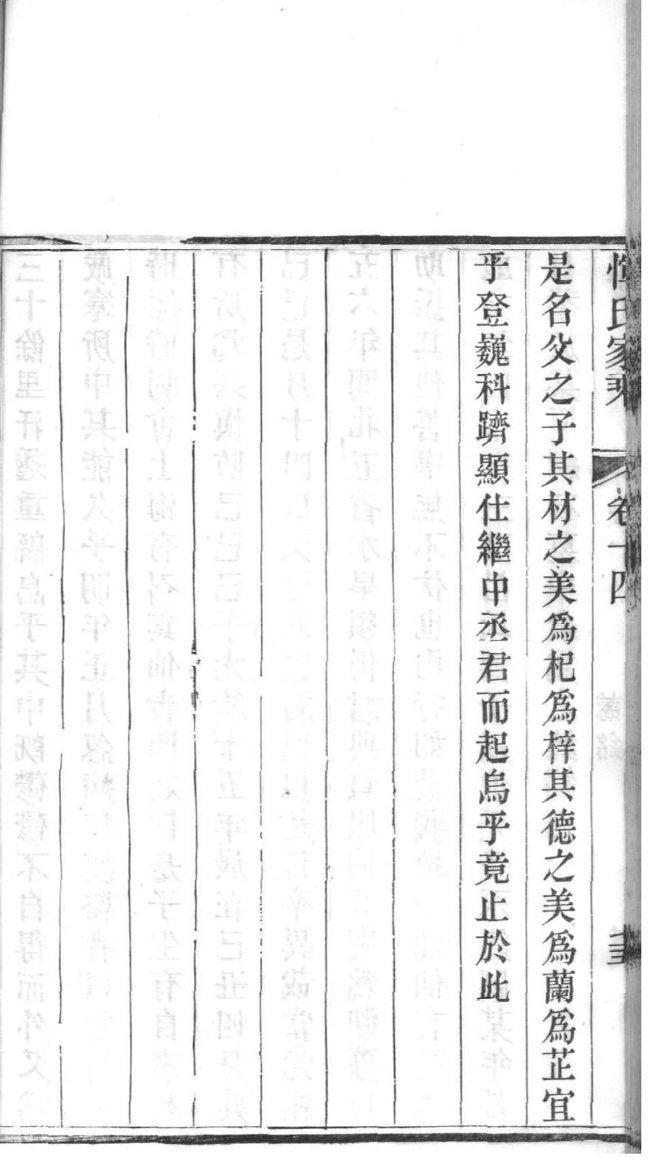 惲氏家乘 卷十四
是名父之子其材之美爲杞爲梓其德之美爲蘭爲芷宜
乎登巍科躋顯仕繼中丞君而起烏乎竟止於此